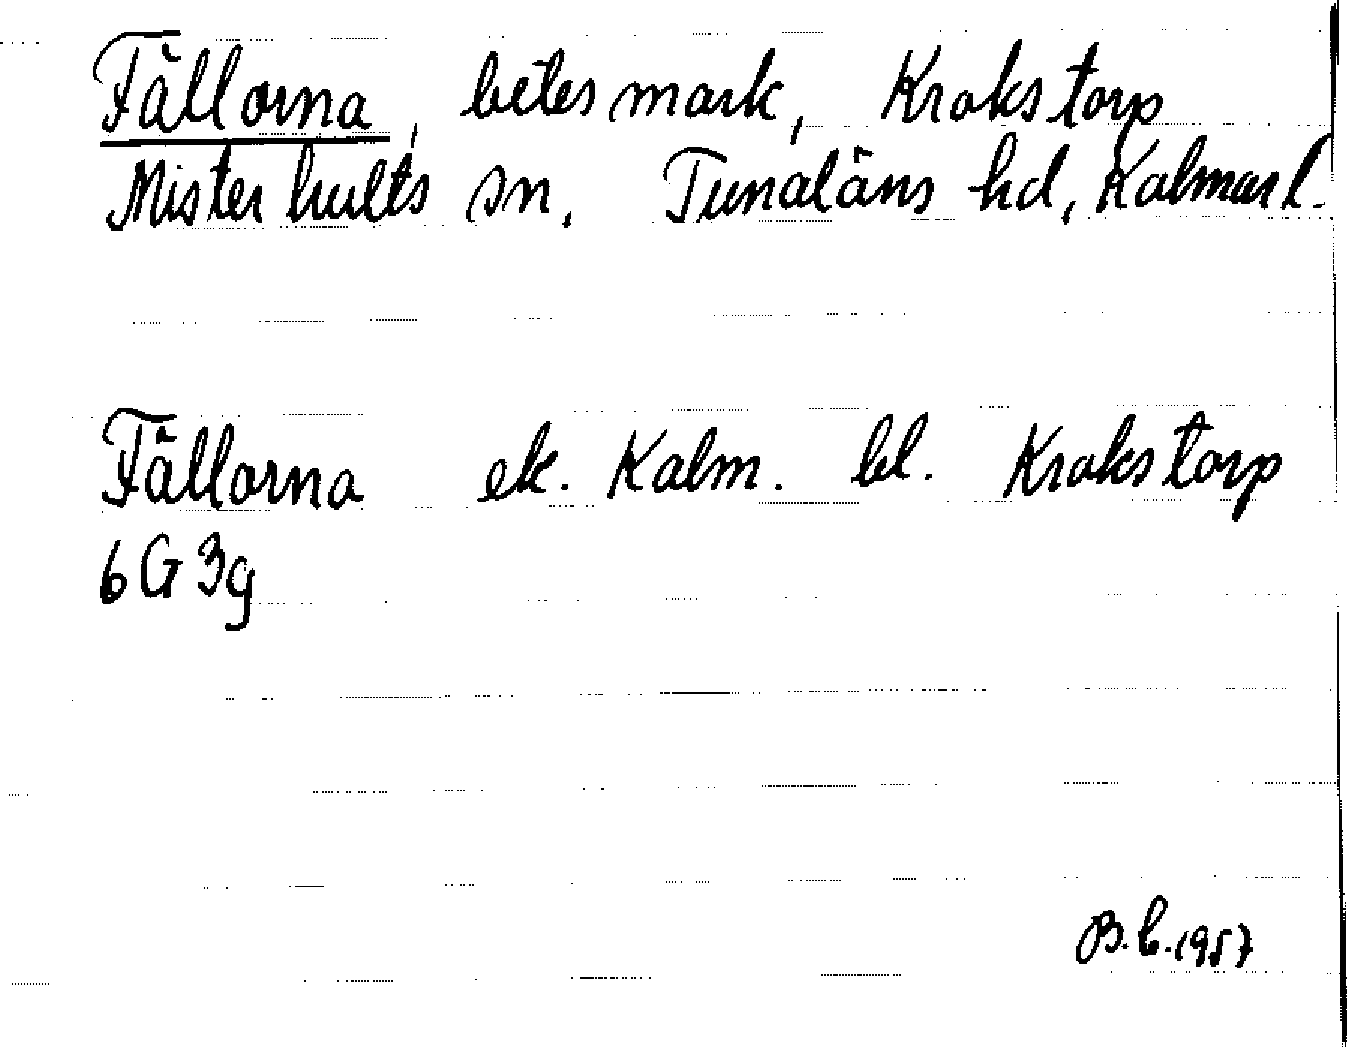 Fällorna, betesmark, Krokstorp
Misterhults sn. Tunaläns hd, Kalmar l.
Fällorna ek. Kalm. bl. Krokstorp
6G3g
B.b.1957